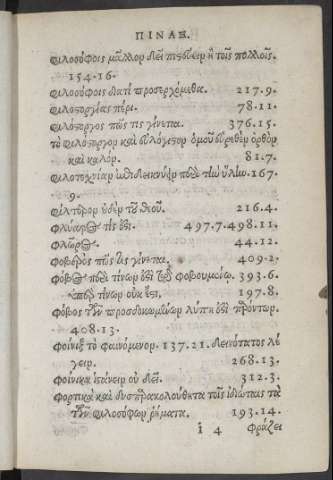 ΠΙΝΑΞ.
φιλοσόφοις μᾶλλον δεῖ πιστεύειν ἢ τοῖς πολλοῖς.
154.16.
φιλοσόφοις διατί προσερχόμεθα. 217.9.
φιλοστοργίας πέρι. 78.11.
φιλόστοργος πῶς τις γένηται. 376.15.
τὸ φιλόστοργον καὶ εὐλόγιστον ὁμοῦ εὑρεθὲν ὀρθὸν
καὶ καλόν. 81.7.
φιλοτεχνίαν ἐπιδείκνυεν περὶ τὴν ὕλην. 167.
9.
φίλτερον οὐδὲν τοῦ θεοῦ. 216.4.
φλύαρος τίς ἐστι. 497.7.498.11.
44.12.
φοβερὸς πῶς τις γένηται. 409.2.
φόβος περὶ τίνων ἐστὶ τοῦ φοβουμένου. 393.6.
περὶ τίνων οὐκ ἔστι. 197.8.
φόβος τῶν προσδοκωμένων λύπη ἐστὶ παρόντων.
408.13.
φοίνιξ τὸ φαινόμενον. 137.21. δεινότατος λέ
γειν. 268.13.
φοίνικα ἱστάνειν οὐ δεῖ. 312.3.
φορτικὰ καὶ δυσπαρακολούθητα τοῖς ἰδιώταις τὰ
τῶν φιλοσόφων ῥήματα. 193.14.
i 4 φράζει